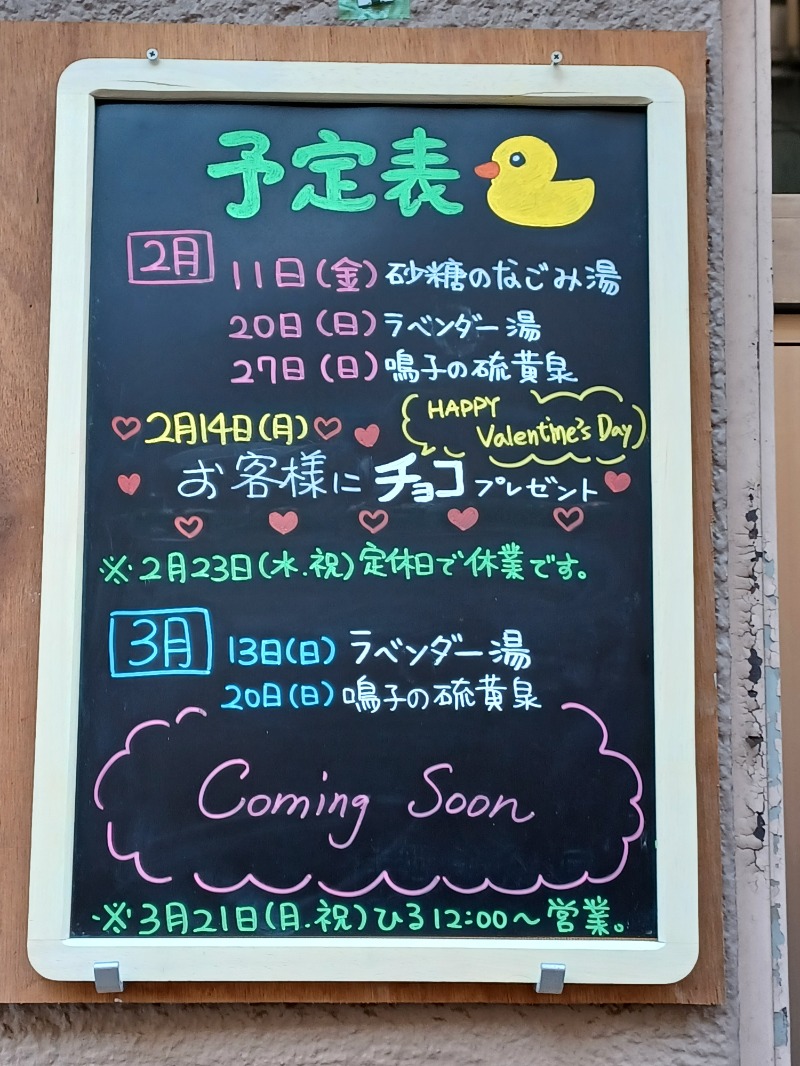 予定表
2月 11日(金) 砂糖のなごみ湯
20日(日) ラベンダー湯
27日(日) 鳴子の硫黄泉
2月14日(月)
HAPPY
Valentine's Day
お客様に チョコ プレゼント
※2月23日(水.祝)定休日で休業です。
3月 13日(日) ラベンダー湯
20日(日) 鳴子の硫黄泉
Coming Soon
※3月21日(月.祝)ひる12:00〜営業。